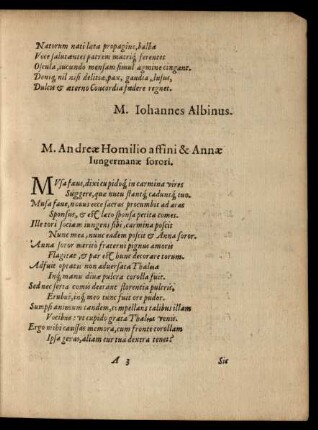 Natorum nati lata propagine, balba
Voce salutantes patrem matrisq́; ferentes
Oscula, iucundo mensam simul agmine cingant.
Deniq; nil nisi delitiæ, pax, gaudia, lusus,
Dulcis & æterno Concordia fœdere regnet.
M. Iohannes Albinus.
M. Andreæ Homilio affini & Annæ
Iungermanæ sorori.
MUsa faue, dixi cupidoq́; in carmina vires
Suggere, quæ nutu stantq́; caduntq́; tuo.
Musa faue, nouus ecce sacras procumbit ad aras
Sponsus, & est læto sponsa petita comes.
Ille tori sociam iungens sibi, carmina poscit
Nunc mea, nunc eadem poscit & Anna soror.
Anna soror marito fraterni pignus amoris
Flagitat, & par est huius decorare torum.
Adfuit optatis non aduersata Thalia
Inq́; manu diuæ pulcra corolla fuit.
Sed nec serta comis deerant florentia pulcris,
Erubui, inq́; meo tunc fuit ore pudor.
Sumpsi animum tandem, compellans talibus illam
Vocibus: ut cupido grata Thalia venis.
Ergo mihi caussas memora, cum fronte corollam
Ipsa geras, aliam cur tua dextra tenet?
A 3
Sic